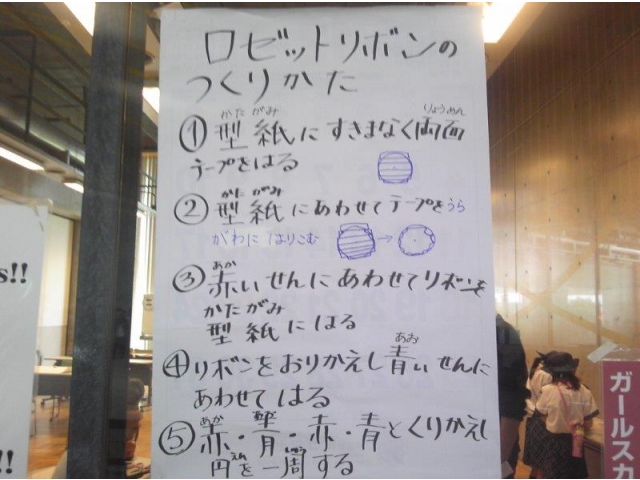 ロゼットリボンの
つくりかた
かた がみ
りょうめん
①型紙にすきまなく両面
テープをはる
かた がみ
②型紙にあわせてテープをうら
がわにはりこむ
あか
③赤いせんにあわせてリボンを
かたがみ
型紙にはる
あお
④リボンをおりかえし青いせんに
あわせてはる
あか
⑤赤・青・赤・青とくりかえし
えん
しゅう
円を一周する
s!!
!!
ガールスカ